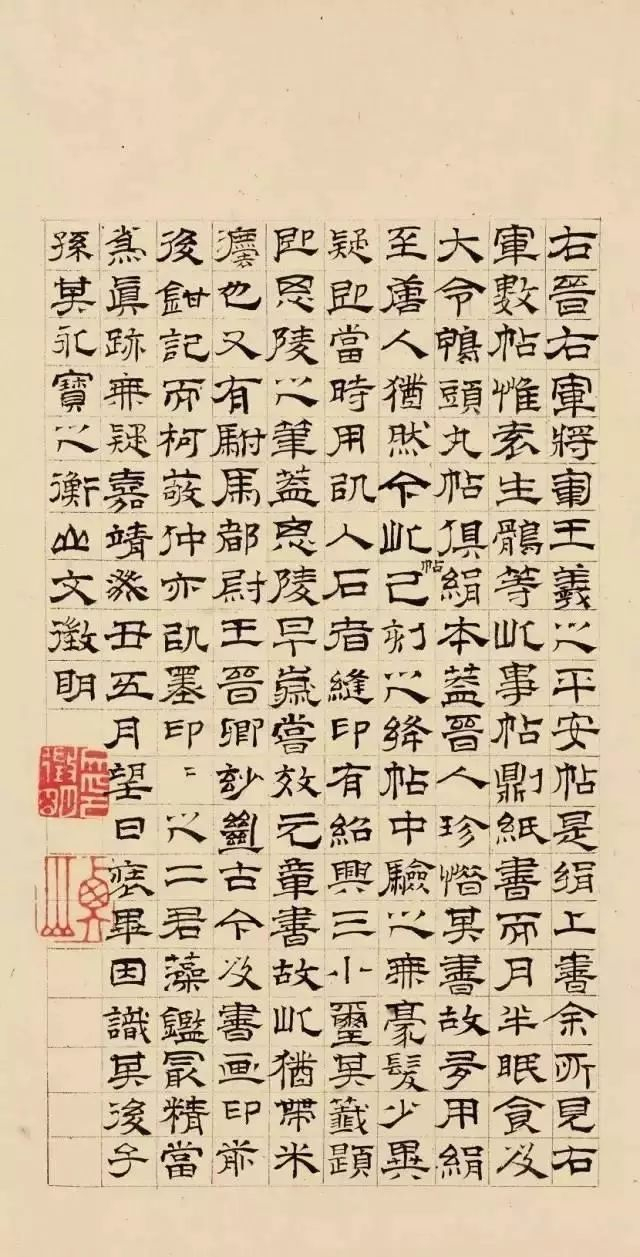 右晉右軍將軍王羲之平安帖是絹上書余所見右
軍數帖惟袁生鶻等此事帖則紙書而月半眠食及
大令鴨頭丸帖俱絹本蓋晉人珍惜其書故多用絹
至唐人猶然今此帖已刻之絳帖中驗之無豪髮少異
疑即當時用以入石者縫印有紹興三小璽其籤題
即思陵之筆蓋思陵早歲嘗效元章書故此猶帶米
也又有駙馬都尉王晉卿玅古今及書画印前
後鉗記而柯敬仲亦以墨印〻之二君藻鑑最精當
為眞跡無疑嘉靖癸丑五月望日裝畢因識其後子
孫其永寶之衡山文徵明